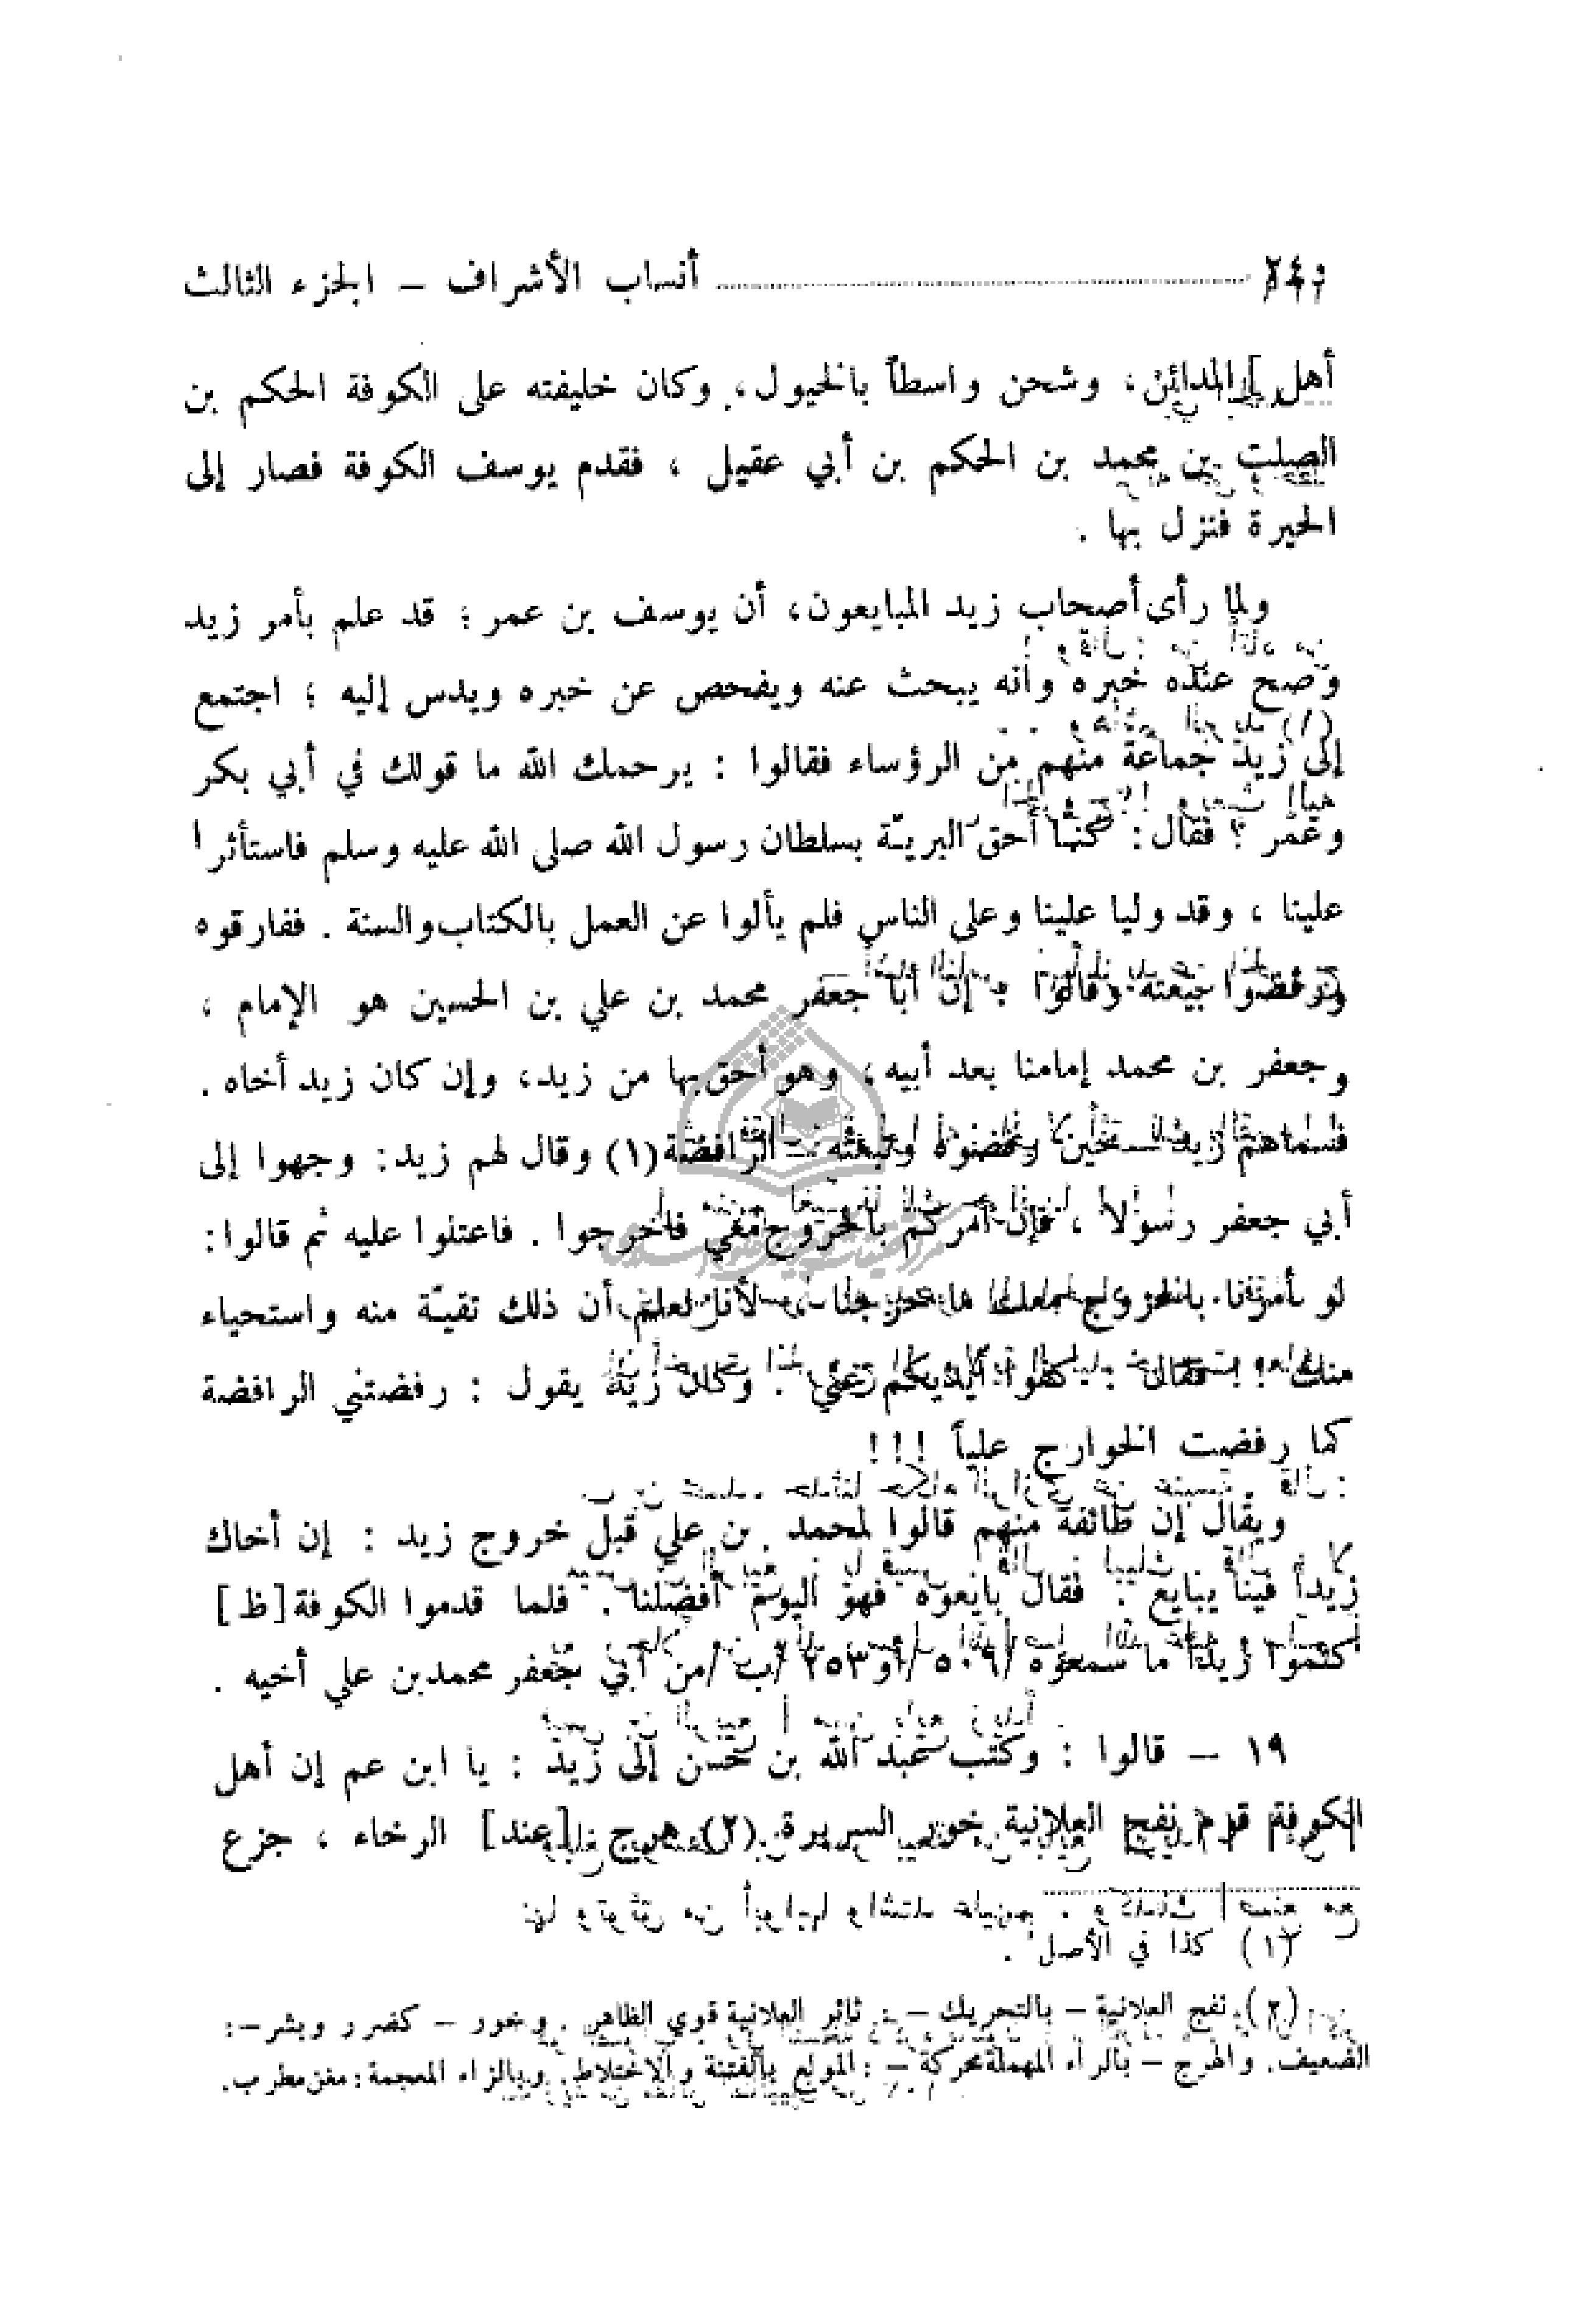 ٢٤٠ أنساب الأشراف – الجزء الثالث
أهل المدائن ، وشحن واسطاً بالخيول ، وكان خليفته على الكوفة الحكم بن
الصلت بن محمد بن الحكم بن أبي عقيل ، فقدم يوسف الكوفة فصار إلى
الحيرة فنزل بها .
ولما رأى أصحاب زيد المبايعون، أن يوسف بن عمر ؛ قد علم بأمر زيد
وصح عنده خبره وانه يبحث عنه ويفحص عن خبره ويدس إليه ؛ اجتمع
إلى زيد جماعة منهم من الرؤساء فقالوا : يرحمك الله ما قولك في أبي بكر
وعمر ؟ فقال : كنّا أحق البريـّة بسلطان رسول الله صلى الله عليه وسلم فاستأثرا
علينا ، وقد وليا علينا وعلى الناس فلم يألوا عن العمل بالكتاب والسنة . ففارقوه
ورفضوا بيعته وقالوا : إن أبا جعفر محمد بن علي بن الحسين هو الإمام ،
وجعفر بن محمد إمامنا بعد أبيه ؛ وهو أحق بها من زيد، وإن كان زيد أخاه .
فسماهم زيد – حين رفضوه وبيعته – الرافضة (١) وقال لهم زيد: وجهوا إلى
أبي جعفر رسولاً ، فإن أمركم بالخروج معي فاخرجوا . فاعتلوا عليه ثم قالوا:
لو أمرنا بالخروج معك ما خرجنا ، لأنا نعلم أن ذلك تقيـّة منه واستحياء
منك ! ! فقال : كفوا أيديكم عني . وكان زيد يقول : رفضتني الرافضة
كما رفضت الخوارج علياً !!!
ويقال إن طائفة منهم قالوا لمحمد بن علي قبل خروج زيد : إن أخاك
زيداً فينا يبايع . فقال بايعوه فهو اليوم أفضلنا . فلما قدموا الكوفة [ظ]
كتموا زيداً ما سمعوه /٥٠٩/أو٢٥٣/ب/ من أبي جعفر محمد بن علي أخيه .
١٩ – قالوا : وكتب عبد الله بن حسن إلى زيد : يا ابن عم إن أهل
الكوفة قوم نفج العلانية خور السريرة (٢) هرج [عند] الرخاء ، جزع
(١) كذا في الأصل .
(٢) نفج العلانية – بالتحريك – : ثائر العلانية قوي الظاهر . وخور – كضرر وبشر –:
الضعيف. والهرج – بالراء المهملة محركة – : المولع بالفتنة والاختلاط. وبالزاء المعجمة: مغن مطرب.